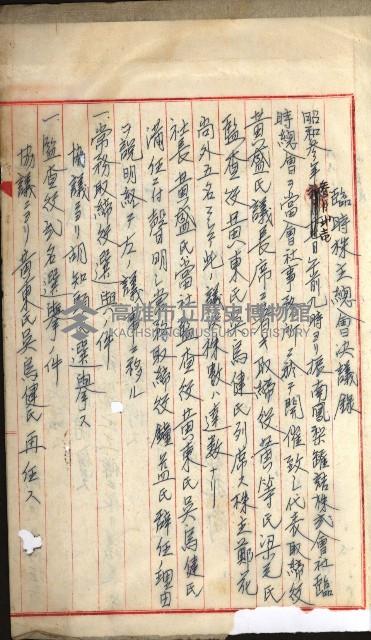 臨時株主總會決議錄
昭和參年 日午前九時ヨリ振南鳳梨罐詰株式會社臨
時總會ヲ當會社事務所ニ於テ開催致シ代表取締役
黃盛氏議長席ニ 取締役黃等氏梁元氏
監查役黃東氏 馬健氏列席大株主鄭花
尚外五名ニシテ此ノ議 株數ハ達數ナリ
社長黃盛氏當 監查役黃東氏吳馬健氏
滿任ニ付聲明シ常務取締役鐘益氏辭任ノ理由
ヲ說明致シ左ノ議事ニ移ル
一、常務取締役選舉ノ件
協議ヨリ胡知 選舉ス
一、監查役貳名選舉ノ件
協議ヨリ黃東氏吳馬健氏再任ス
高雄市立歷史博物館
KAOHSIUNG MUSEUM OF HISTORY